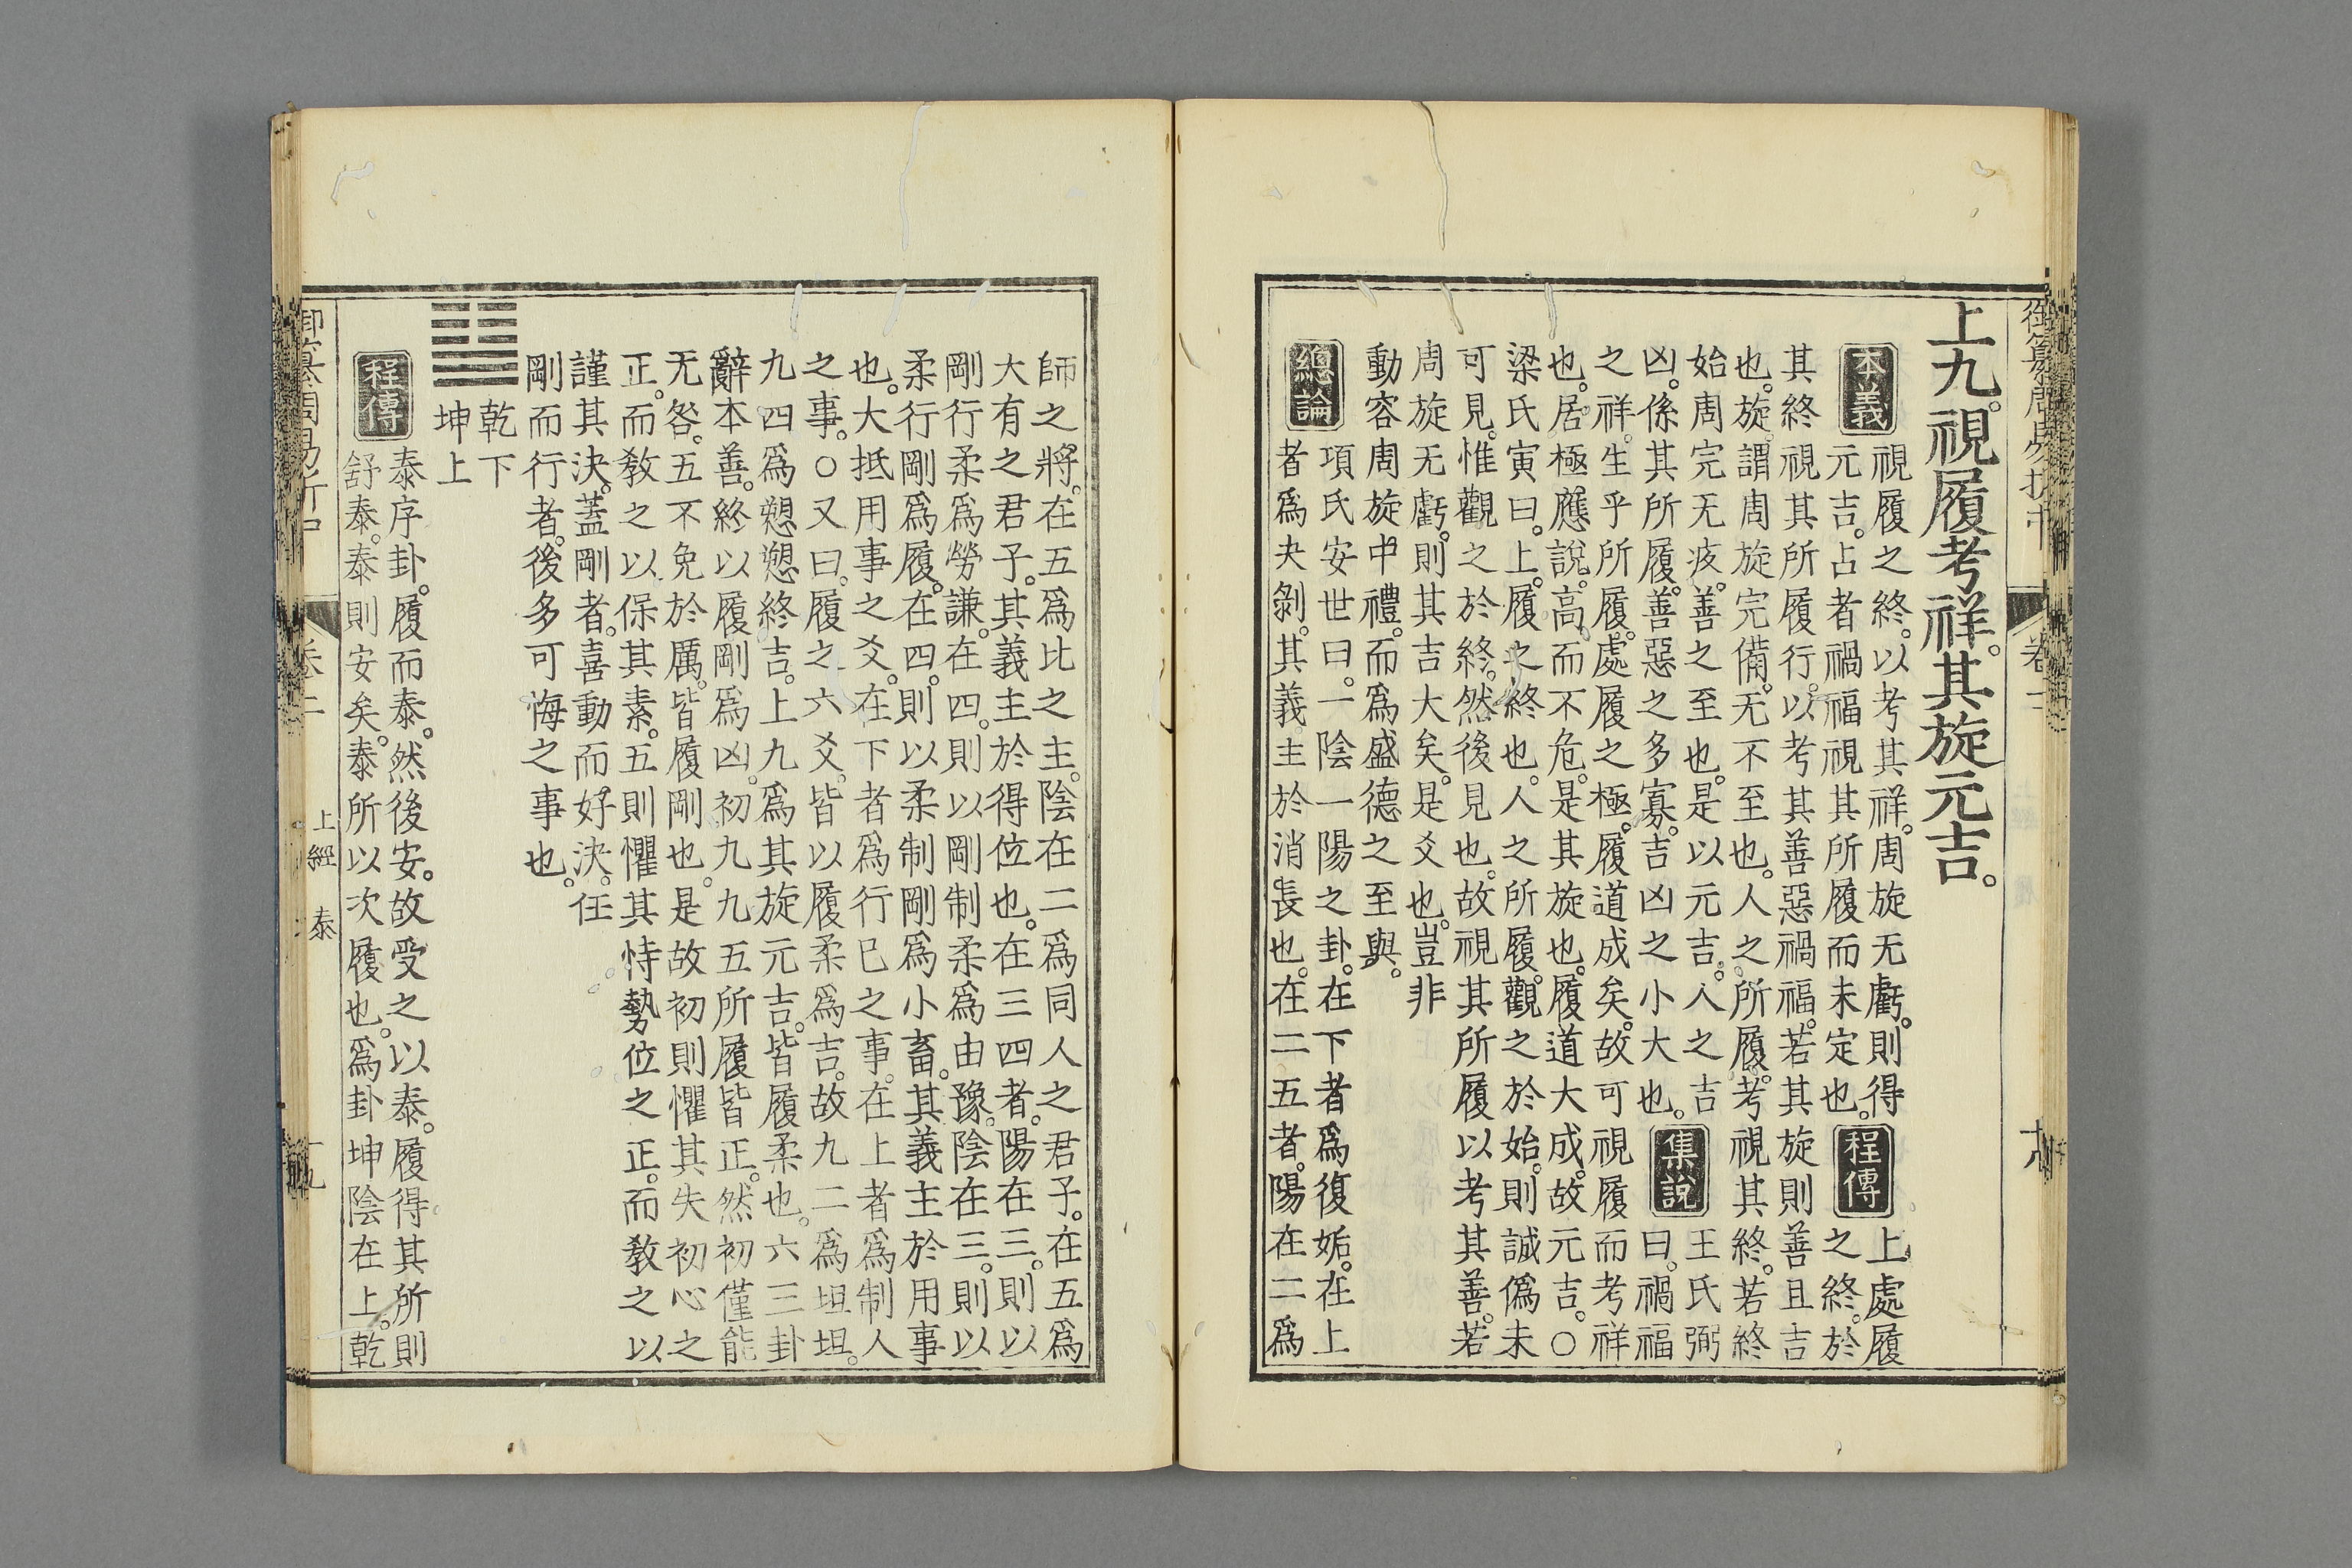 上九。視履考祥。其旋元吉。
本義
視履之終。以考其祥。周旋无虧。則得
元吉。占者禍福視其所履而未定也。
程傳
上處履
之終。於
其終視其所履行。以考其善惡禍福。若其旋則善且吉
也。旋。謂周旋完備。无不至也。人之所履。考視其終。若終
始周完无疚。善之至也。是以元吉。人之吉
凶。係其所履。善惡之多寡。吉凶之小大也。
集說
王氏弼
曰。禍福
之祥。生乎所履。處履之極。履道成矣。故可視履而考祥
也。居極應說。高而不危。是其旋也。履道大成。故元吉。○
梁氏寅曰。上。履之終也。人之所履。觀之於始。則誠僞未
可見。惟觀之於終。然後見也。故視其所履以考其善。若
周旋无虧。則其吉大矣。是爻也。豈非
動容周旋中禮。而爲盛德之至與。
總論
項氏安世曰。一陰一陽之卦。在下者爲復姤。在上
者爲夬剝。其義主於消長也。在二五者。陽在二爲
師之將。在五爲比之主。陰在二爲同人之君子。在五爲
大有之君子。其義主於得位也。在三四者。陽在三。則以
剛行柔爲勞謙。在四。則以剛制柔爲由豫。陰在三。則以
柔行剛爲履。在四。則以柔制剛爲小畜。其義主於用事
也。大抵用事之爻。在下者爲行已之事。在上者爲制人
之事。○又曰。履之六爻。皆以履柔爲吉。故九二爲坦坦。
九四爲愬愬終吉。上九爲其旋元吉。皆履柔也。六三卦
辭本善。終以履剛爲凶。初九九五所履皆正。然初僅能
无咎。五不免於厲。皆履剛也。是故初則懼其失初心之
正。而敎之以保其素。五則懼其恃勢位之正。而敎之以
謹其決。蓋剛者。喜動而好決。任
剛而行者。後多可悔之事也。
乾下
坤上
程傳
泰序卦。履而泰。然後安。故受之以泰。履得其所則
舒泰。泰則安矣。泰所以次履也。爲卦坤陰在上。乾
上經 泰